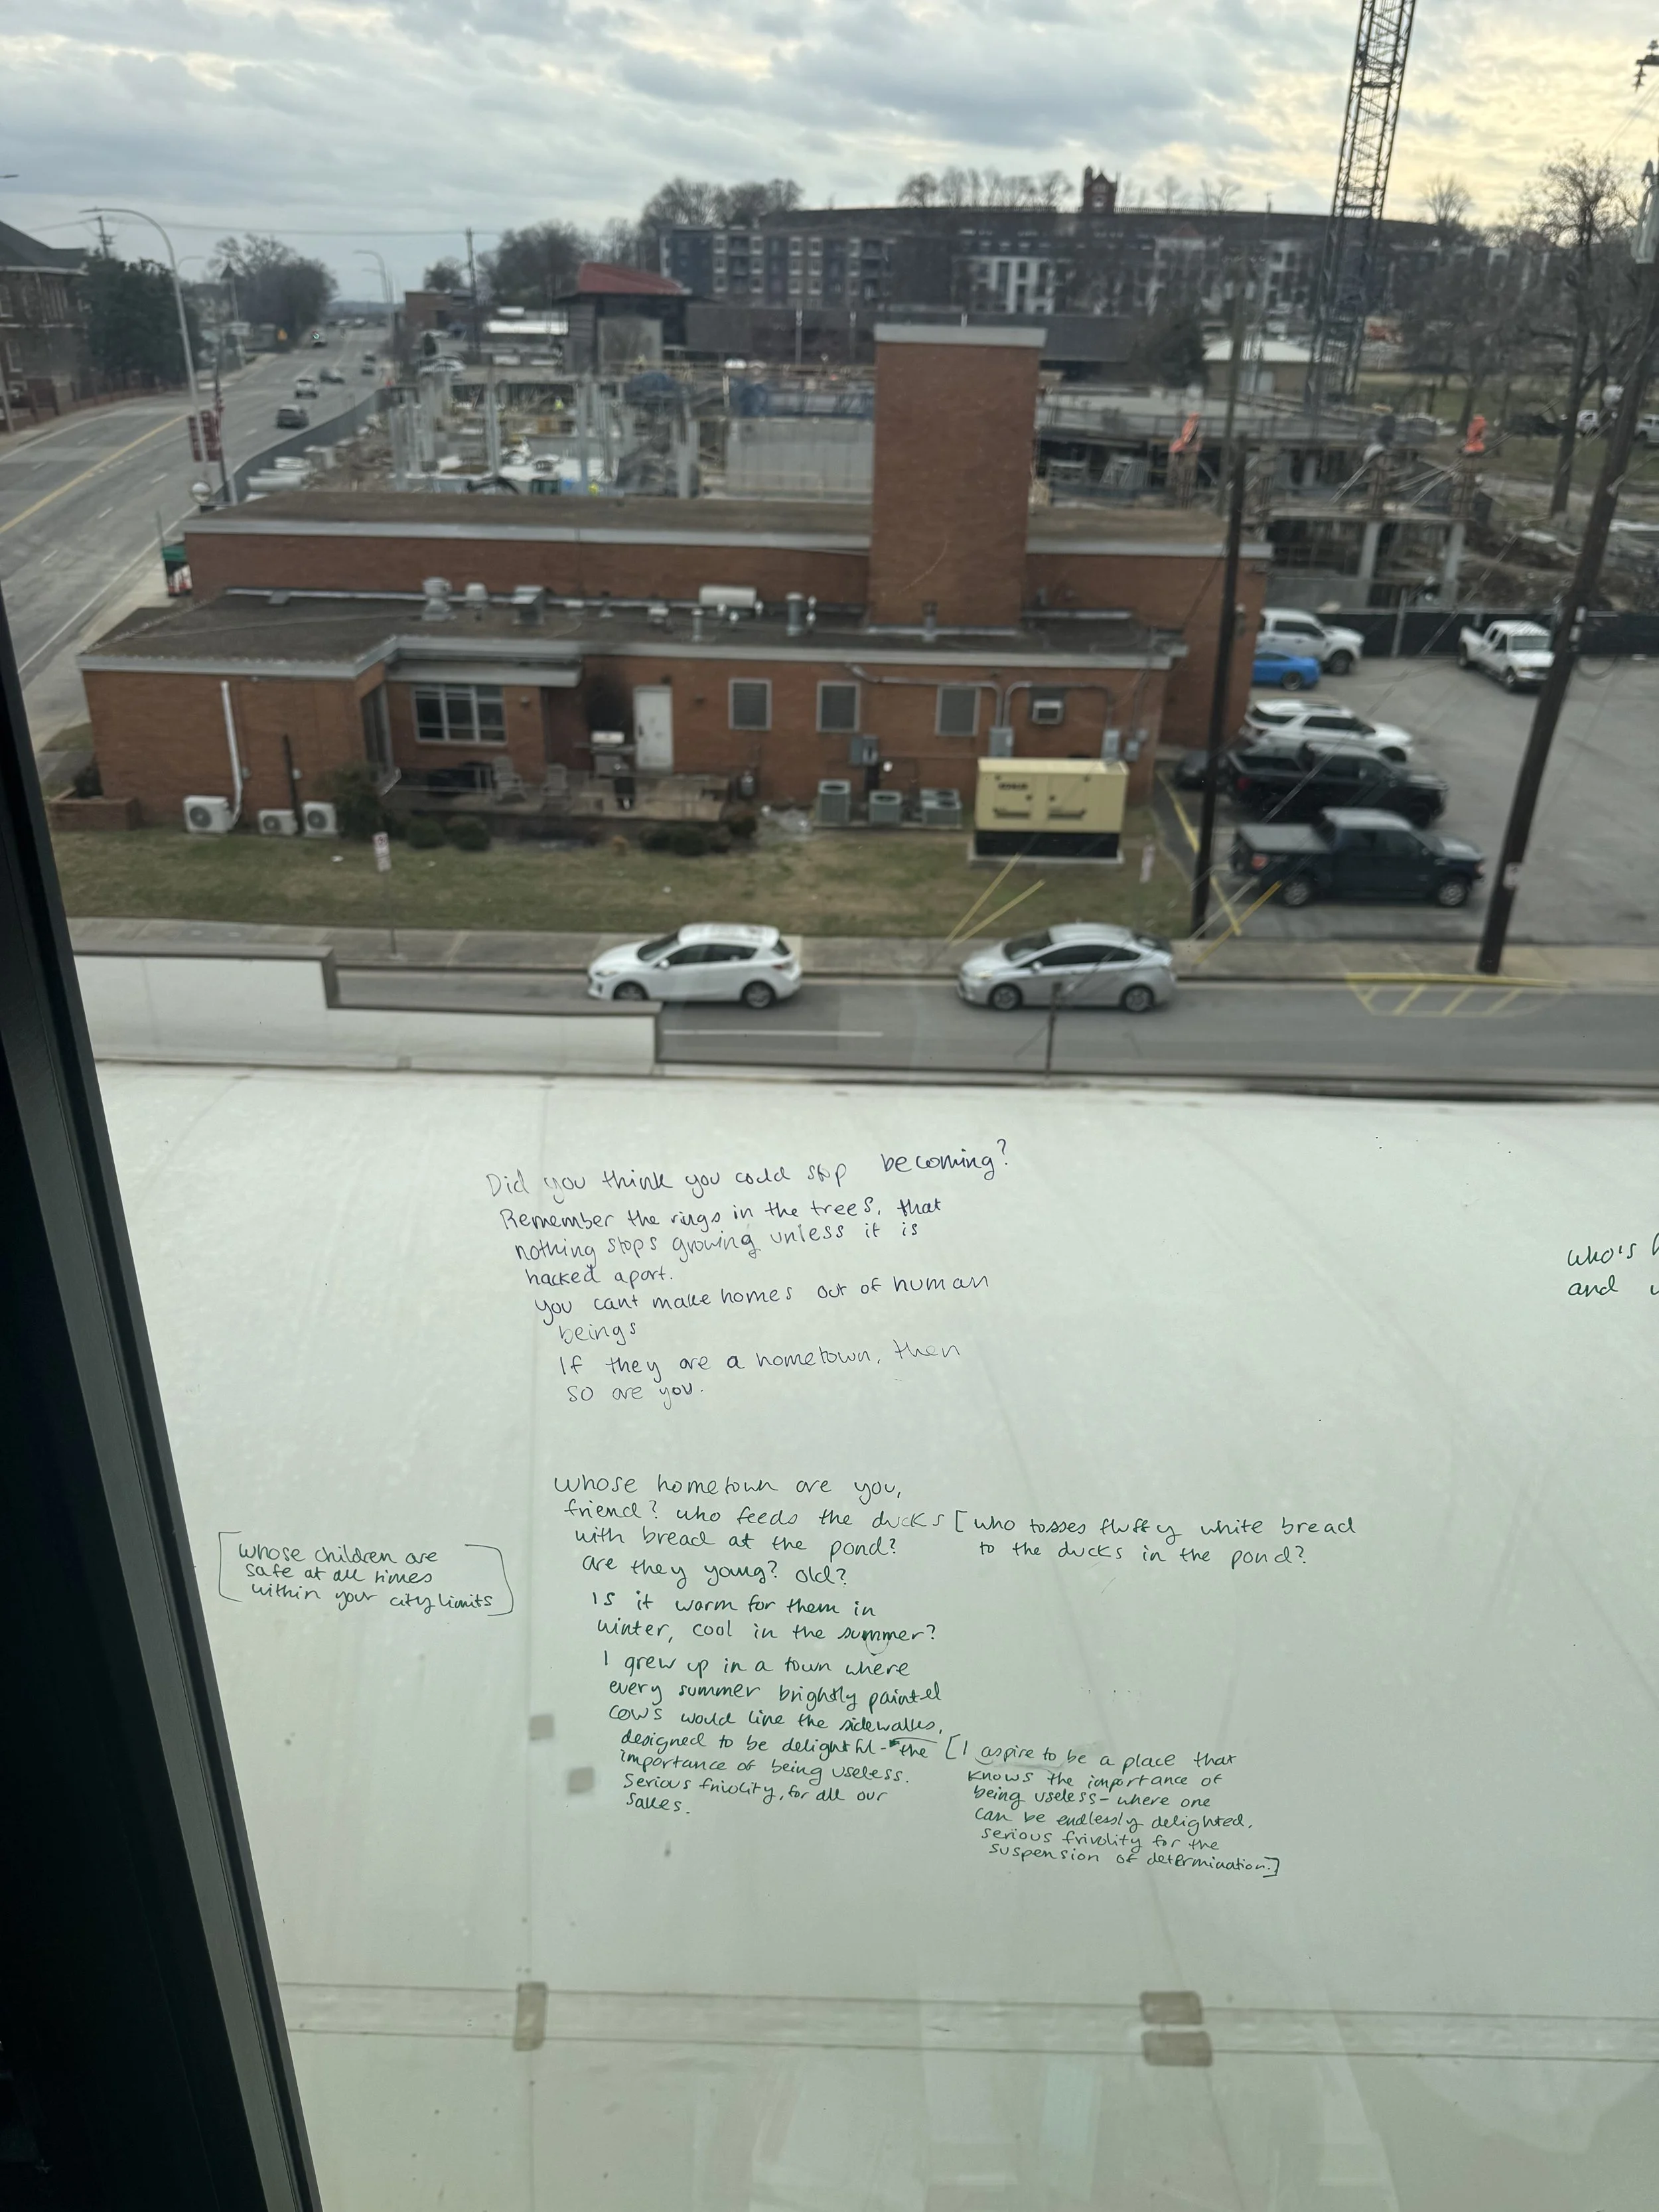 Did you think you could stop becoming?
Remember the rings in the trees, that
nothing stops growing unless it is
hacked apart.
you cant make homes out of human
beings
If they are a hometown, then
so are you.
whose hometown are you,
friend? who feeds the ducks
with bread at the pond?
are they young? old?
Is it warm for them in
winter, cool in the summer?
I grew up in a town where
every summer brightly painted
cows would line the sidewalks,
designed to be delightful- the
importance of being useless.
Serious frivolity, for all our
sakes.
[whose children are
safe at all times
within your city limits]
[who tosses fluffy white bread
to the ducks in the pond?
[I aspire to be a place that
knows the importance of
being useless- where one
can be endlessly delighted.
serious frivolity for the
suspension of determination.]
who's
and